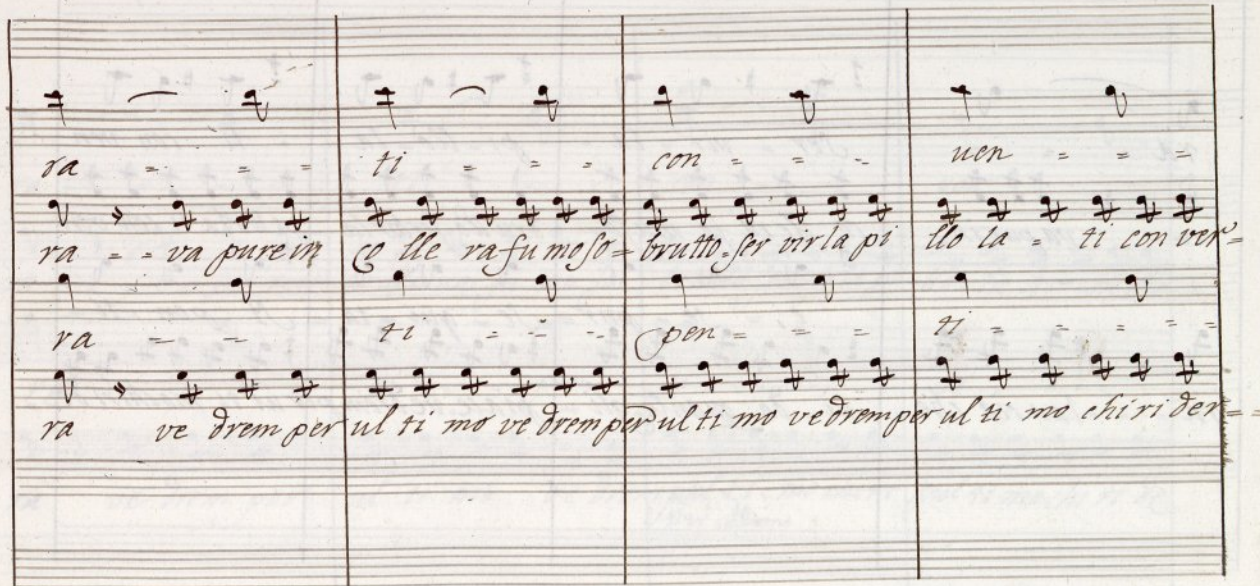 ra = = = ti = = = con = = = uen = = =
ra = = va pure in co lle ra fu mo so = brutto ser vir la pi llo la = ti con ver =
ra = = ti = = = pen = = = ti = = = =
ra ve drem per ul ti mo ve drem per ul ti mo ve drem per ul ti mo chi ri der =